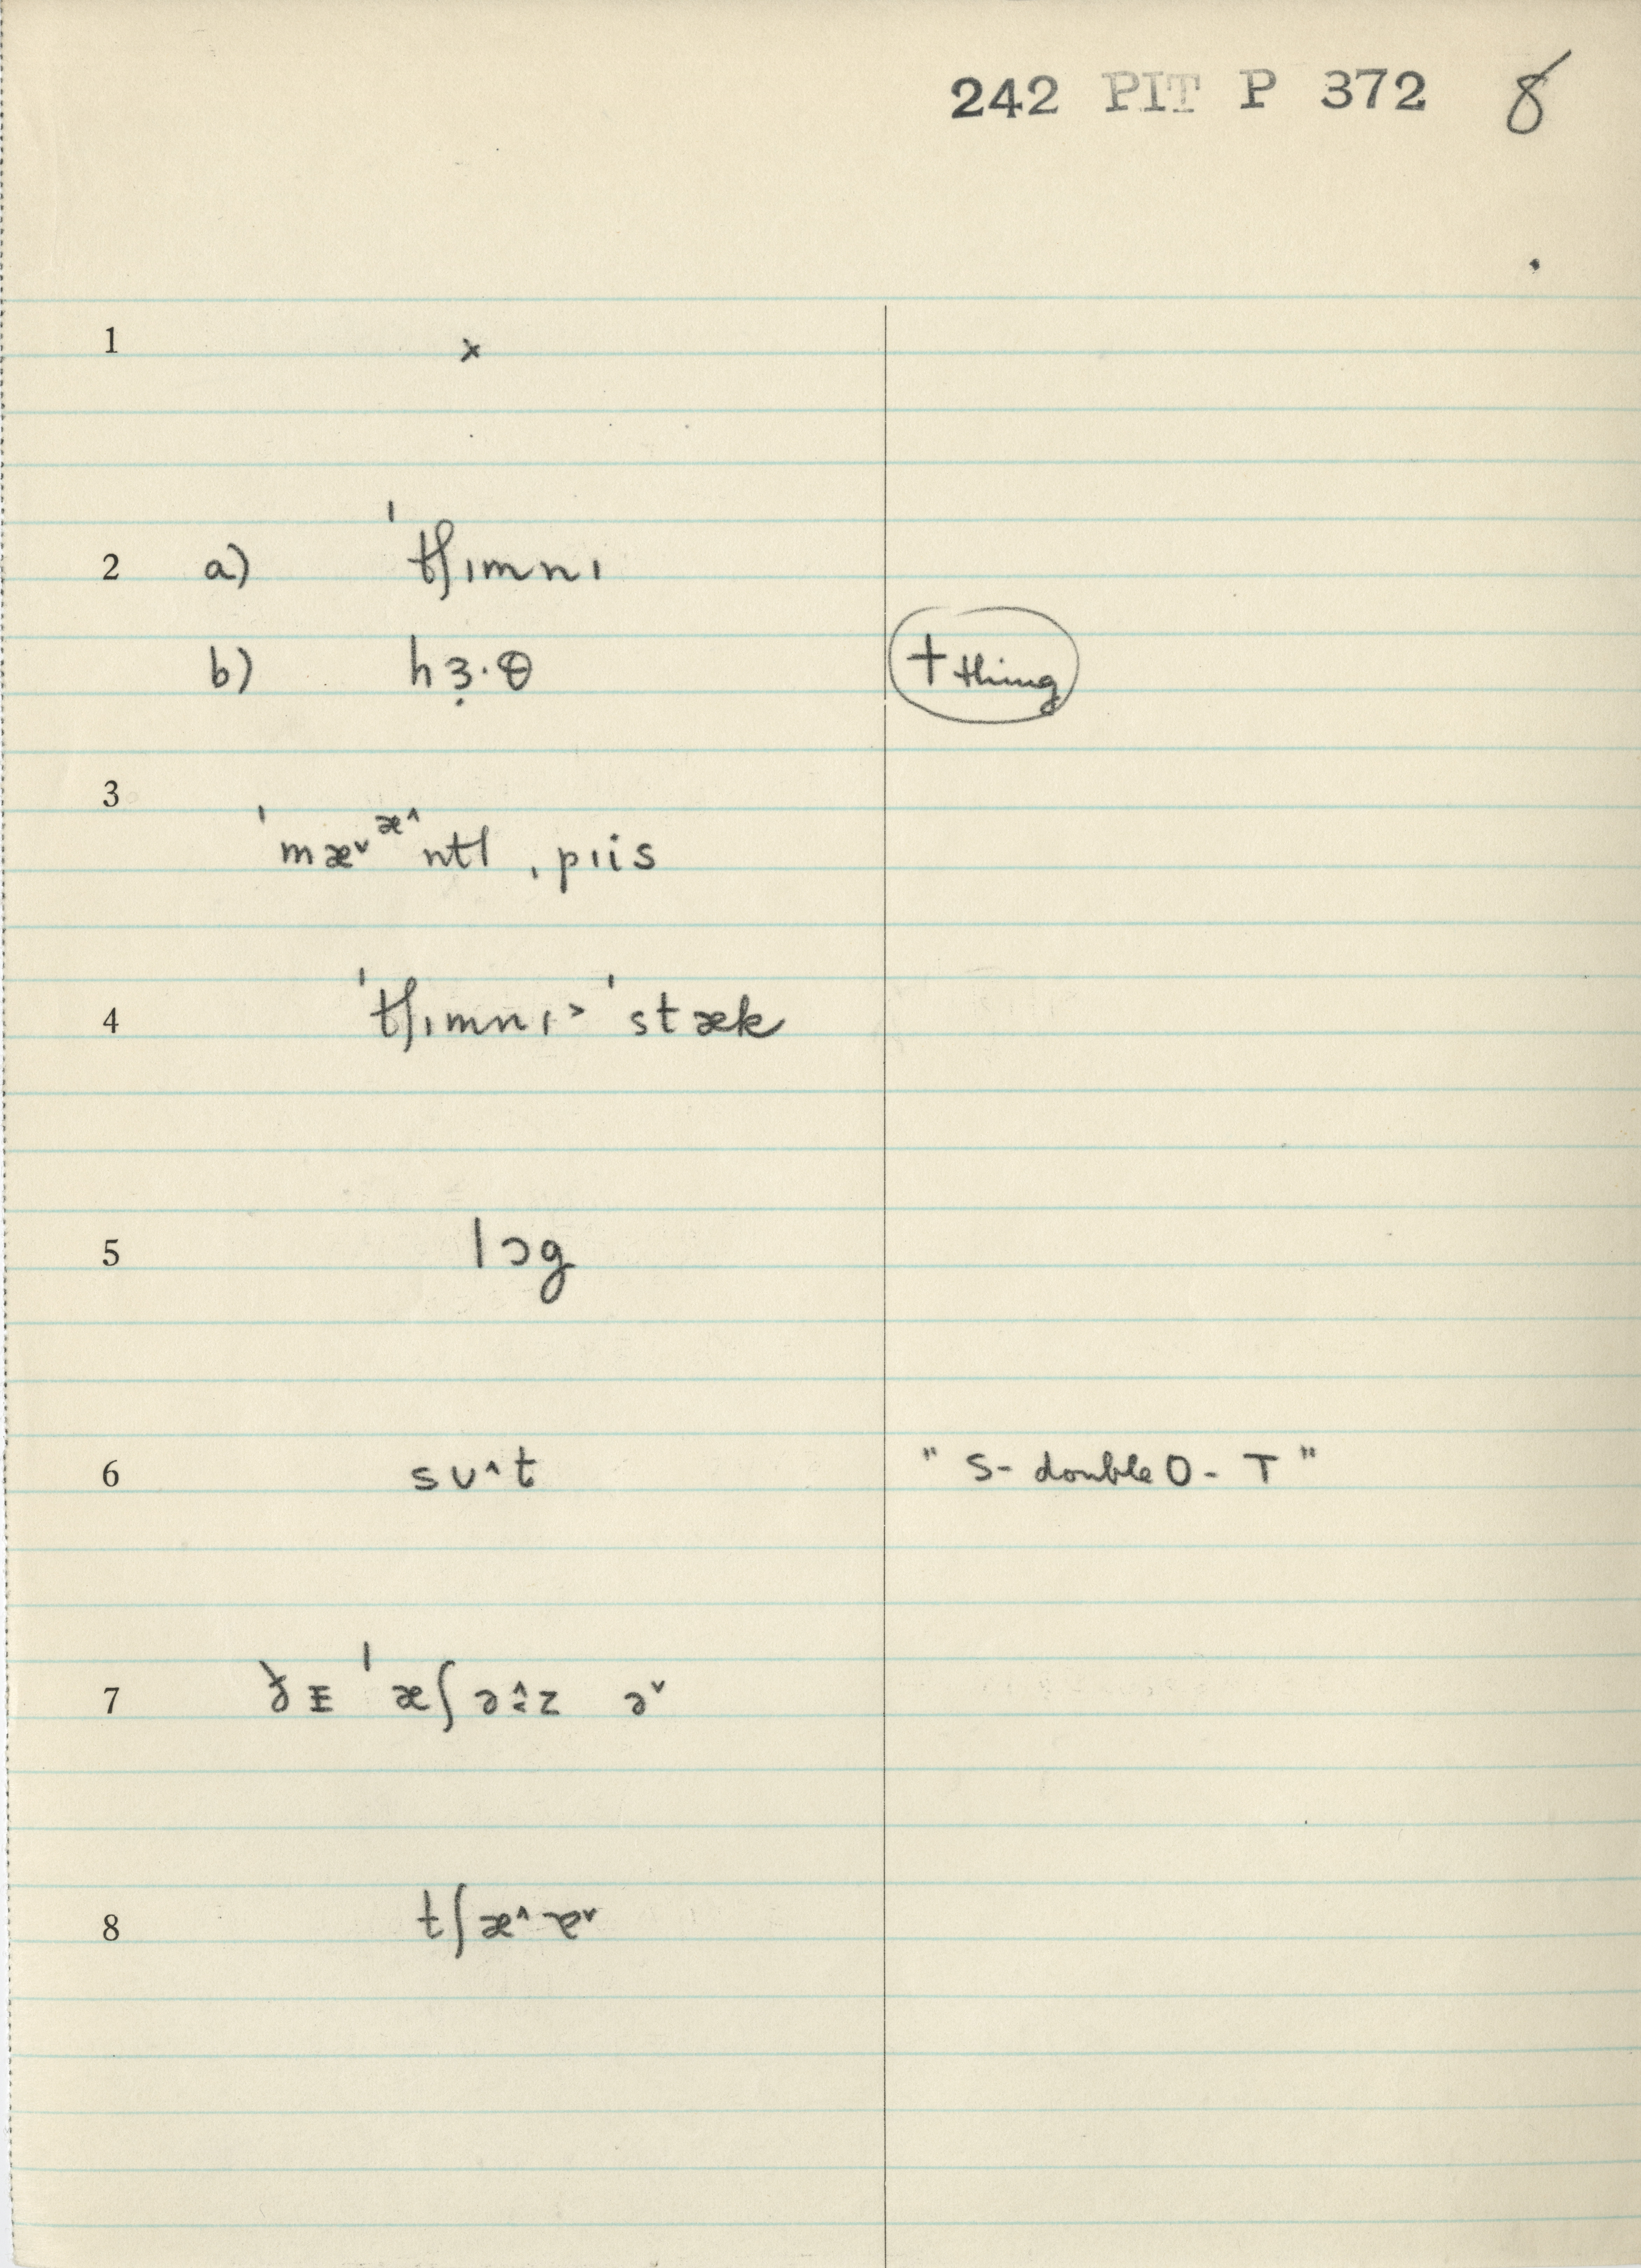 242 PIT P 372 8
1 x
2 a) ˈtʃɪmnɪ
b) hɜ̣·θ + thing
3 ˈmæ˅ æ^ ntl ˌpɪis
4 ˈtʃɪmnɪ> ˈstæk
5 lɔg
6 sʊ^t "S- double O - T"
7 ðɪ ˈæʃə^z ə˅
8 tʃæ^ɐ˅